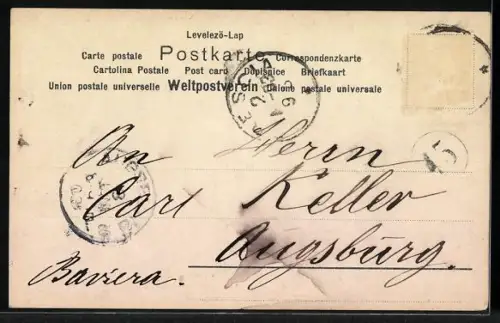 Levelezö-Lap
Carte postale Postkarte Correspondenzkarte
Cartolina Postale Post card Dopisnice Briefkaart
Union postale universelle Weltpostverein Unione postale universale
An Herrn
Carl Keller
Augsburg.
Baviera.
5